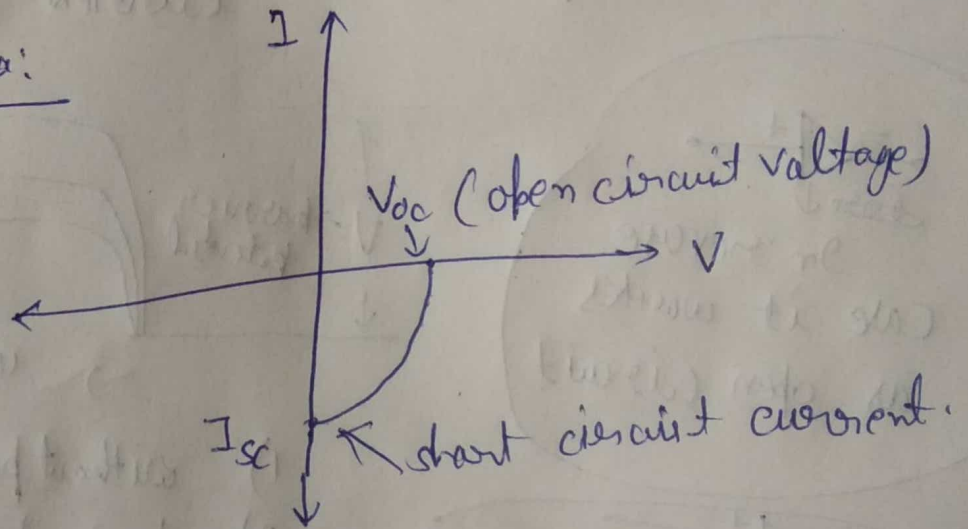 I
a:
Voc (open circuit valtage)
V
Isc
short circuit current.